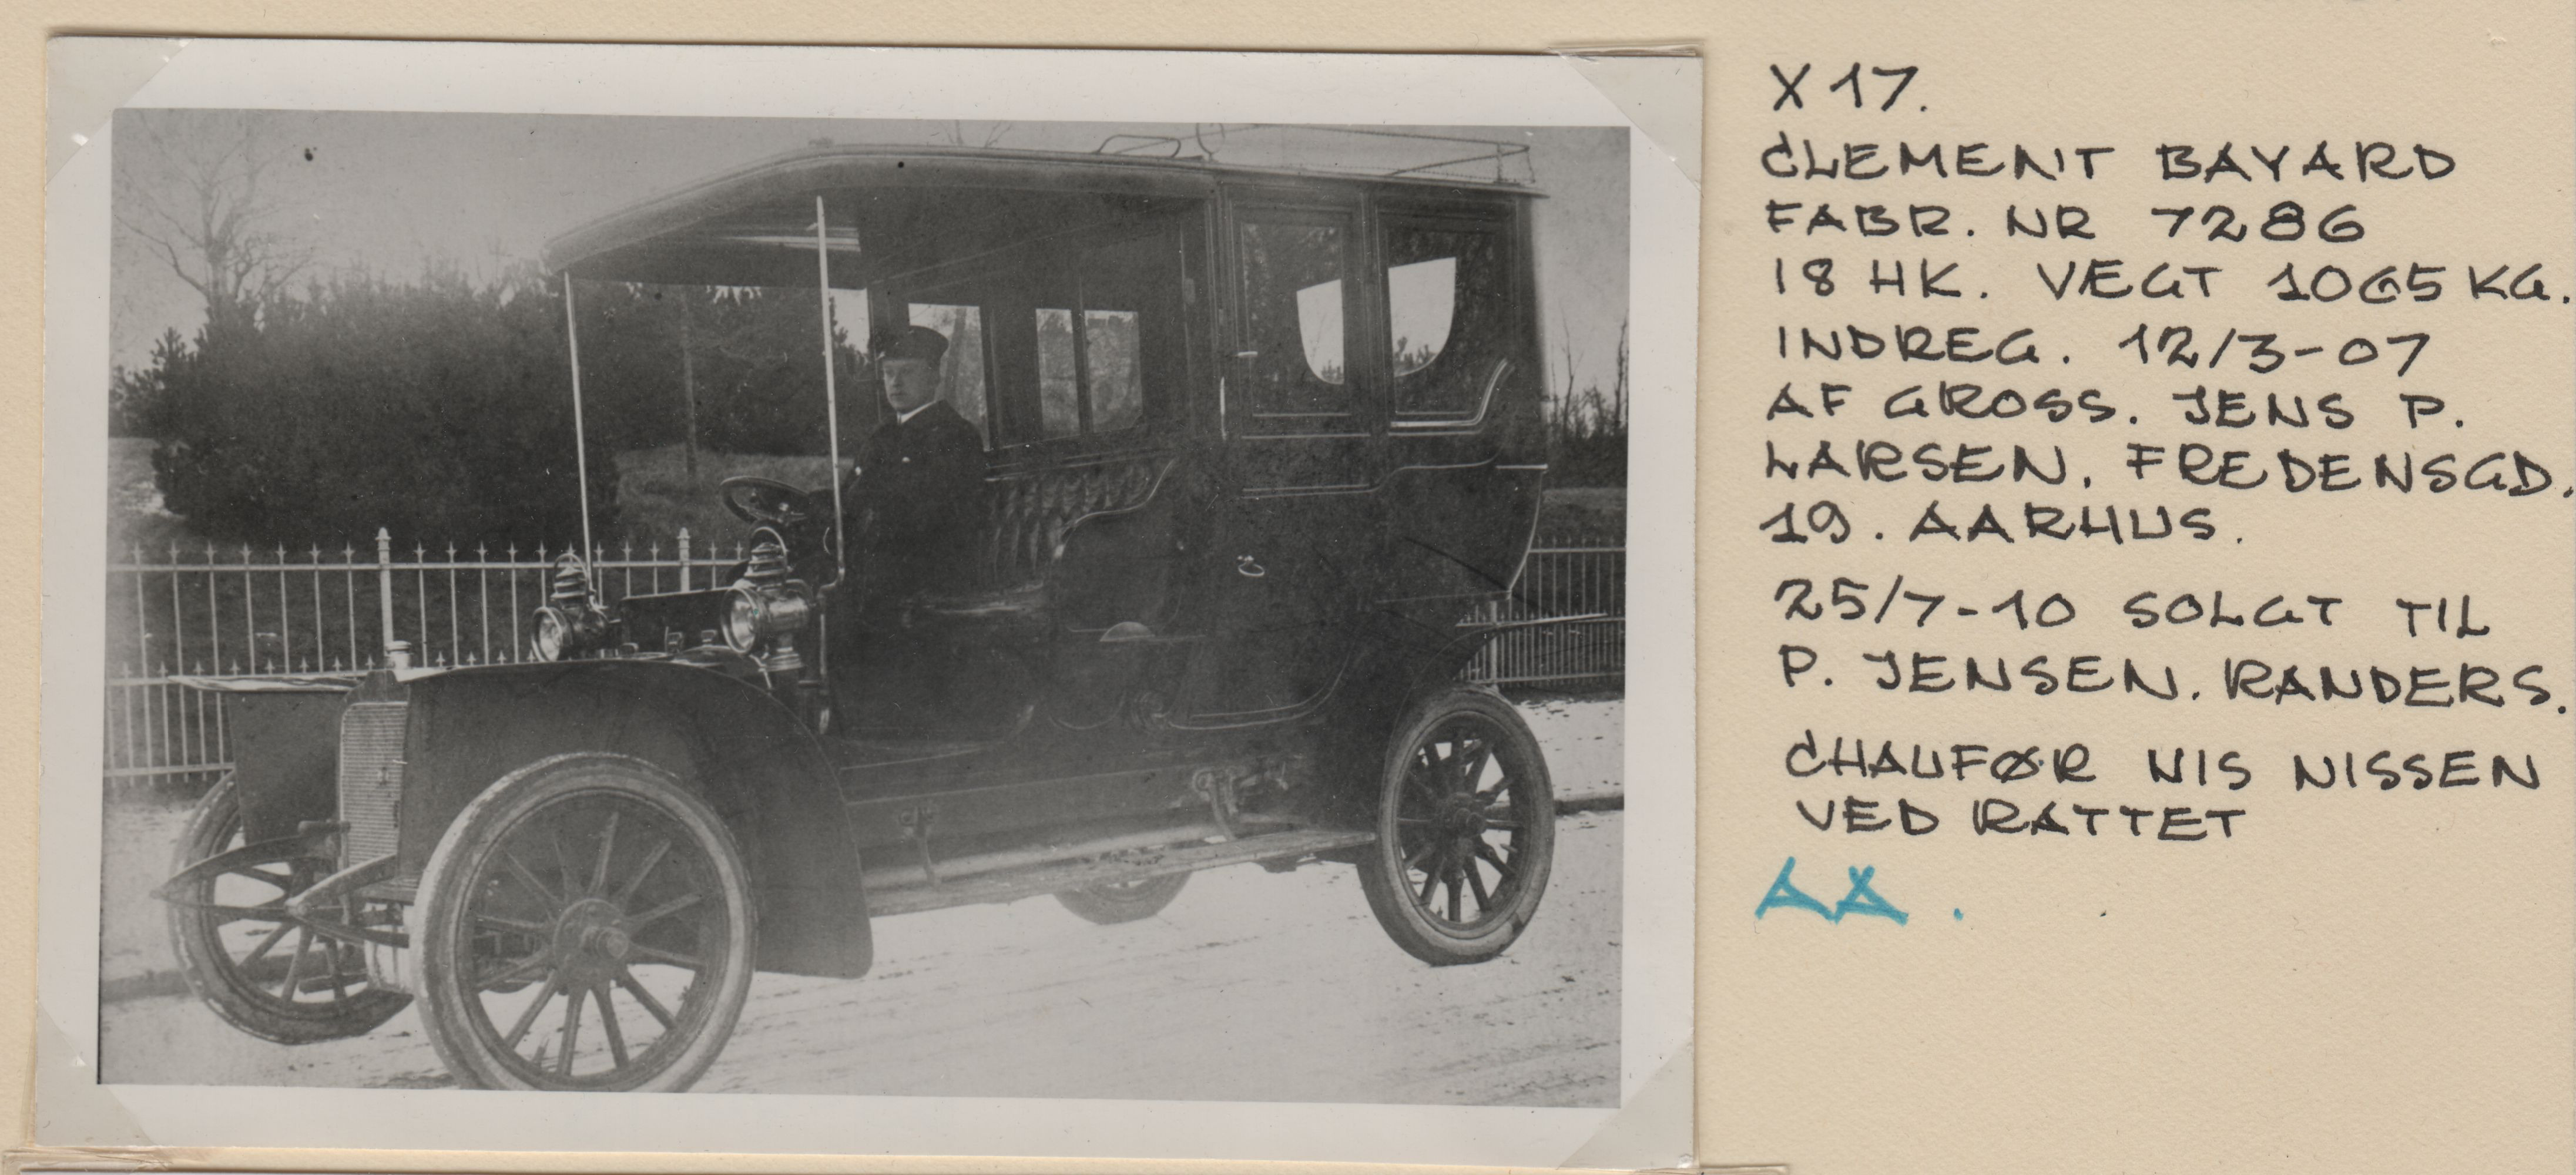 X 17.
CLEMENT BAYARD
FABR. NR 7286
18 HK. VÆGT 1065 KG.
INDREG. 12/3-07
AF GROSS. JENS P.
LARSEN. FREDENSGD.
19. AARHUS.
25/7-10 SOLGT TIL
P. JENSEN. RANDERS.
CHAUFØR NIS NISSEN
VED RATTET
AÄ.